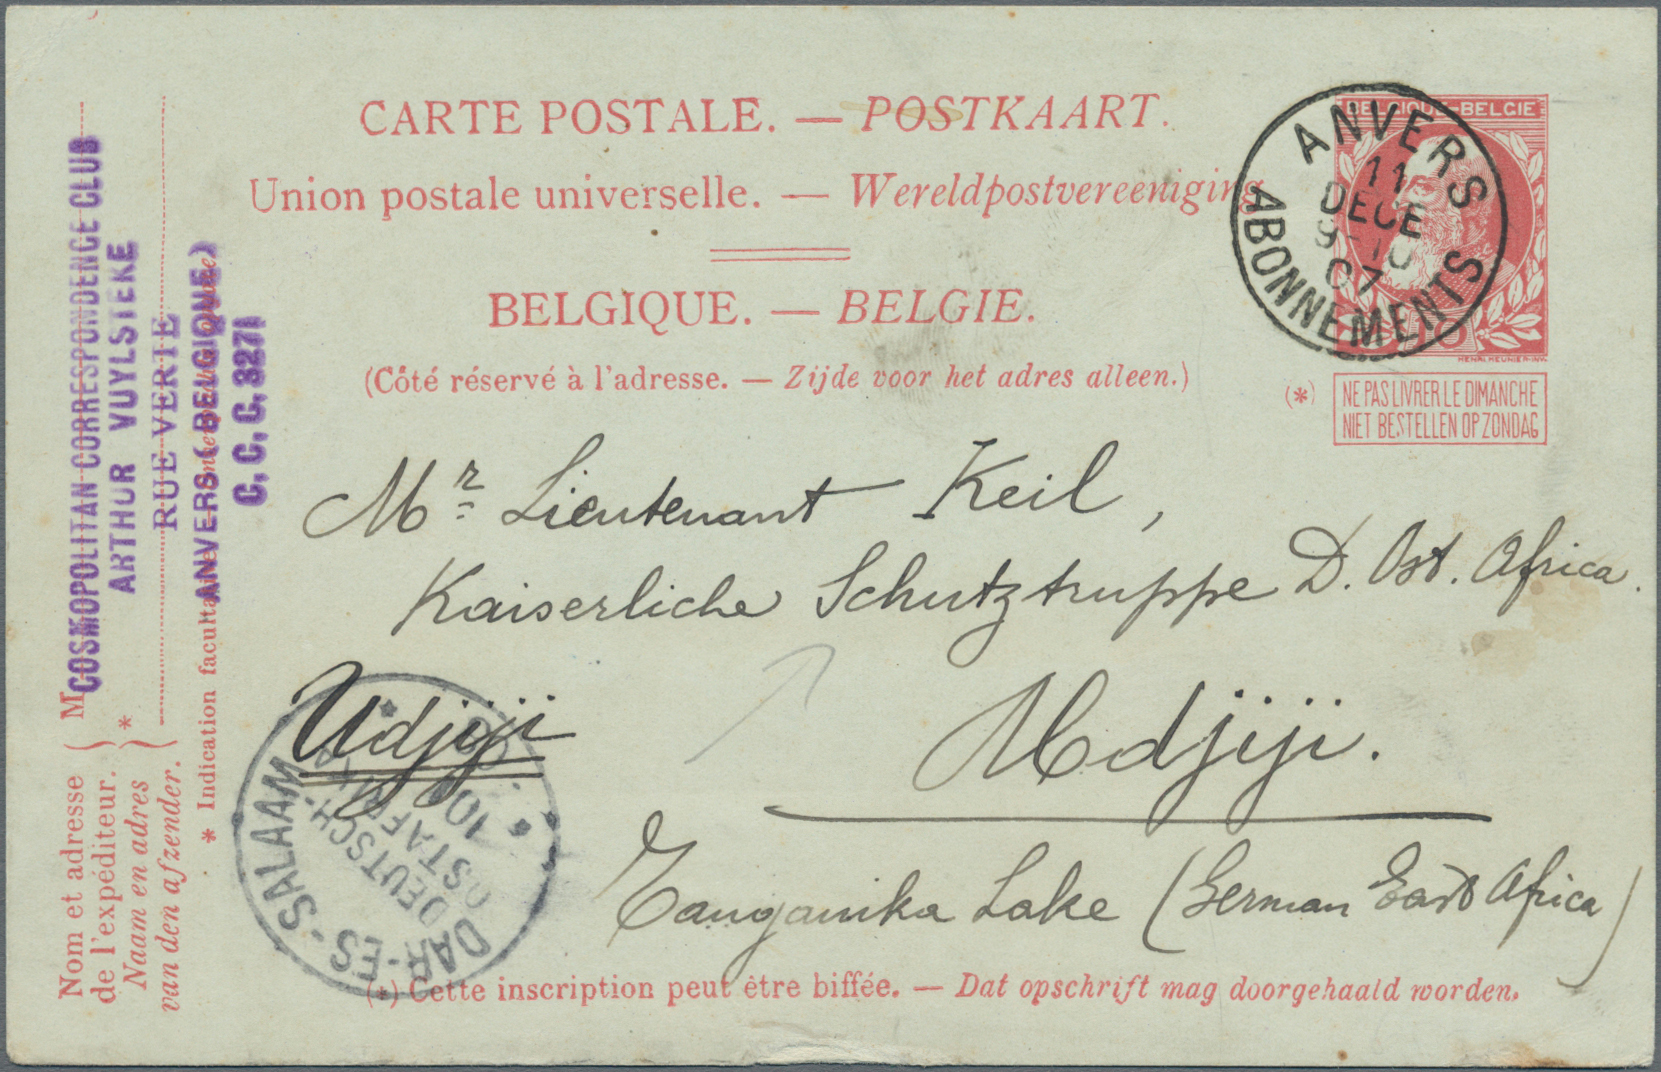 CARTE POSTALE. — POSTKAART.
Union postale universelle. — Wereldpostvereeniging
BELGIQUE. — BELGIE.
(Côté réservé à l'adresse. — Zijde voor het adres alleen.)
BELGIQUE-BELGIE
HENRI MEUNIER-INV.
ANVERS
11
DECE
9-10
07
ABONNEMENTS
(*) NE PAS LIVRER LE DIMANCHE
NIET BESTELLEN OP ZONDAG
Mr Lieutenant Keil,
Kaiserliche Schutztruppe D. Ost. Africa.
Udjiji
Udjiji.
Tanganika Lake (German East Africa)
DAR-ES-SALAAM
DEUTSCH-
OSTAFRIKA
(*) Cette inscription peut être biffée. — Dat opschrift mag doorgehaald worden.
COSMOPOLITAN CORRESPONDENCE CLUB
ARTHUR VUYLSTEKE
RUE VERTE
ANVERS (BELGIQUE)
C. C. C. 3271
M
Nom et adresse
de l'expéditeur.
Naam en adres
van den afzender.
*
* Indication facultative